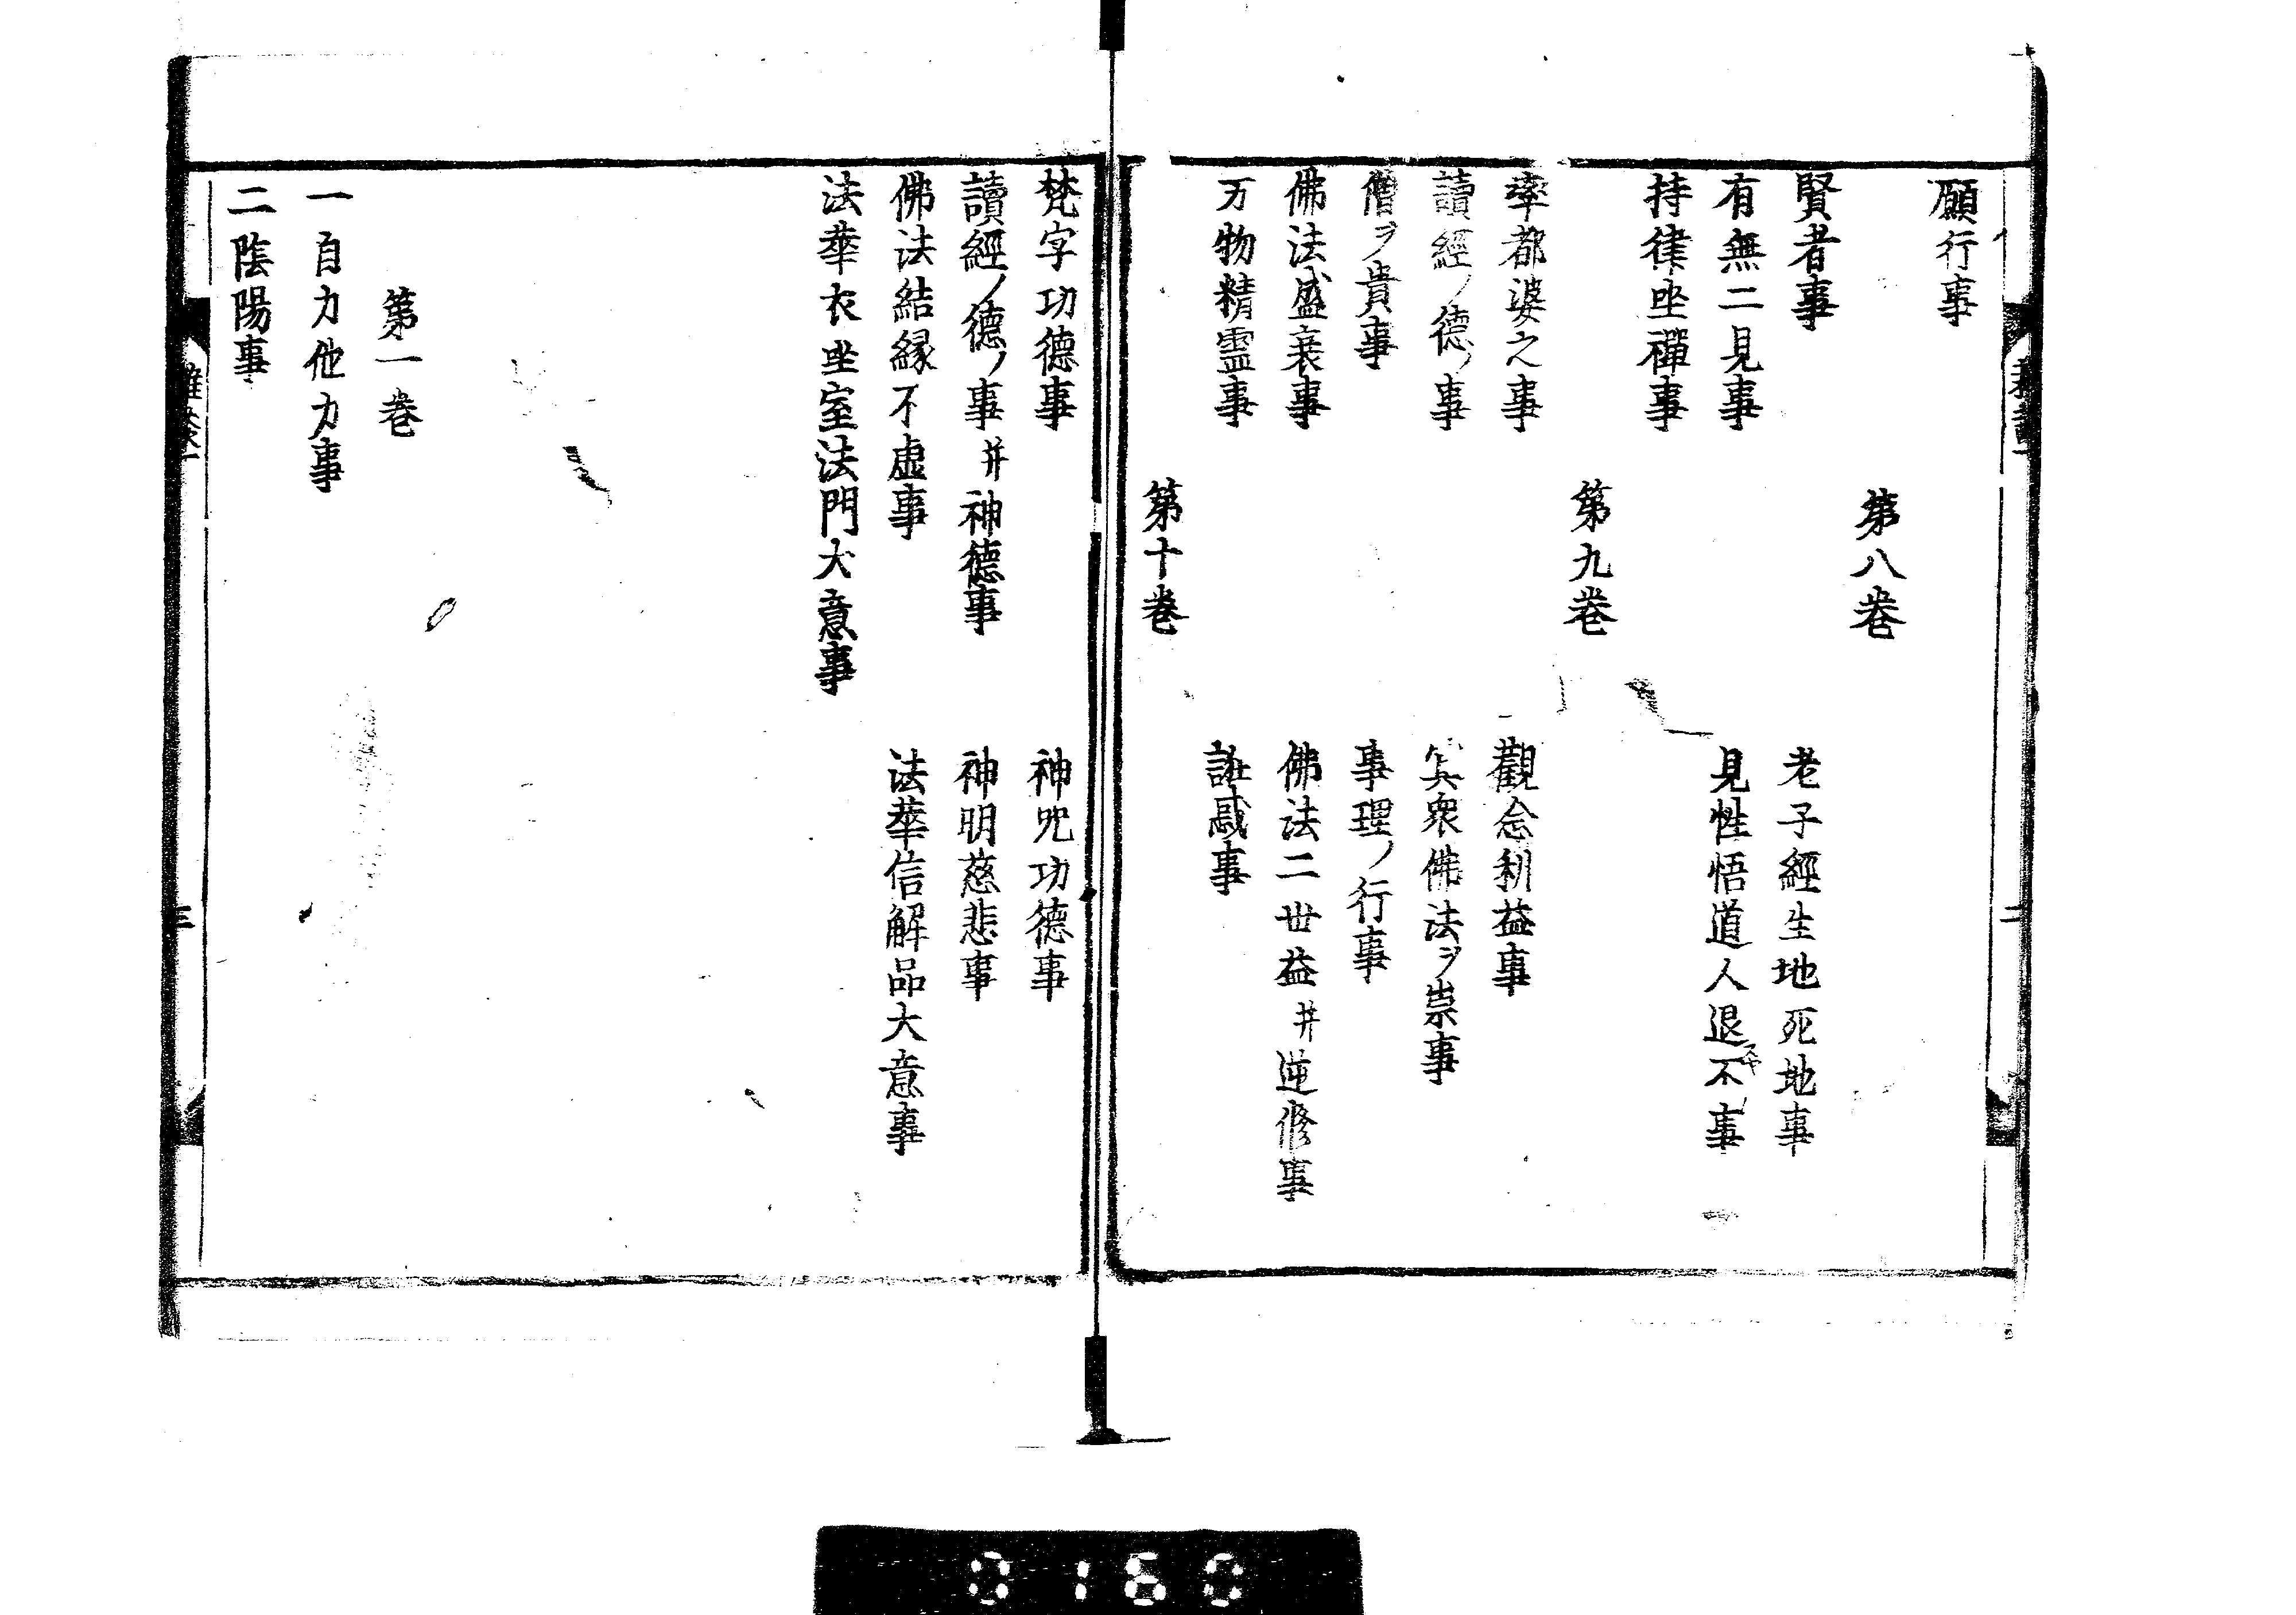 願行事
第八巻
賢者事
老子經生地死地事
有無二見事
見性悟道人退不事
持律坐禪事
第九巻
率都婆之事
觀念利益事
讀經ノ德ノ事
冥衆佛法ヲ崇事
僧ヲ貴事
事理ノ行事
佛法盛衰事
佛法二世益并逆修事
万物精霊事
誑惑事
第十巻
梵字功德事
神呪功德事
讀經ノ德ノ事并神德事
神明慈悲事
佛法結縁不虚事
法華信解品大意事
法華衣坐室法門大意事
第一巻
一自力他力事
二陰陽事
二
三
0160